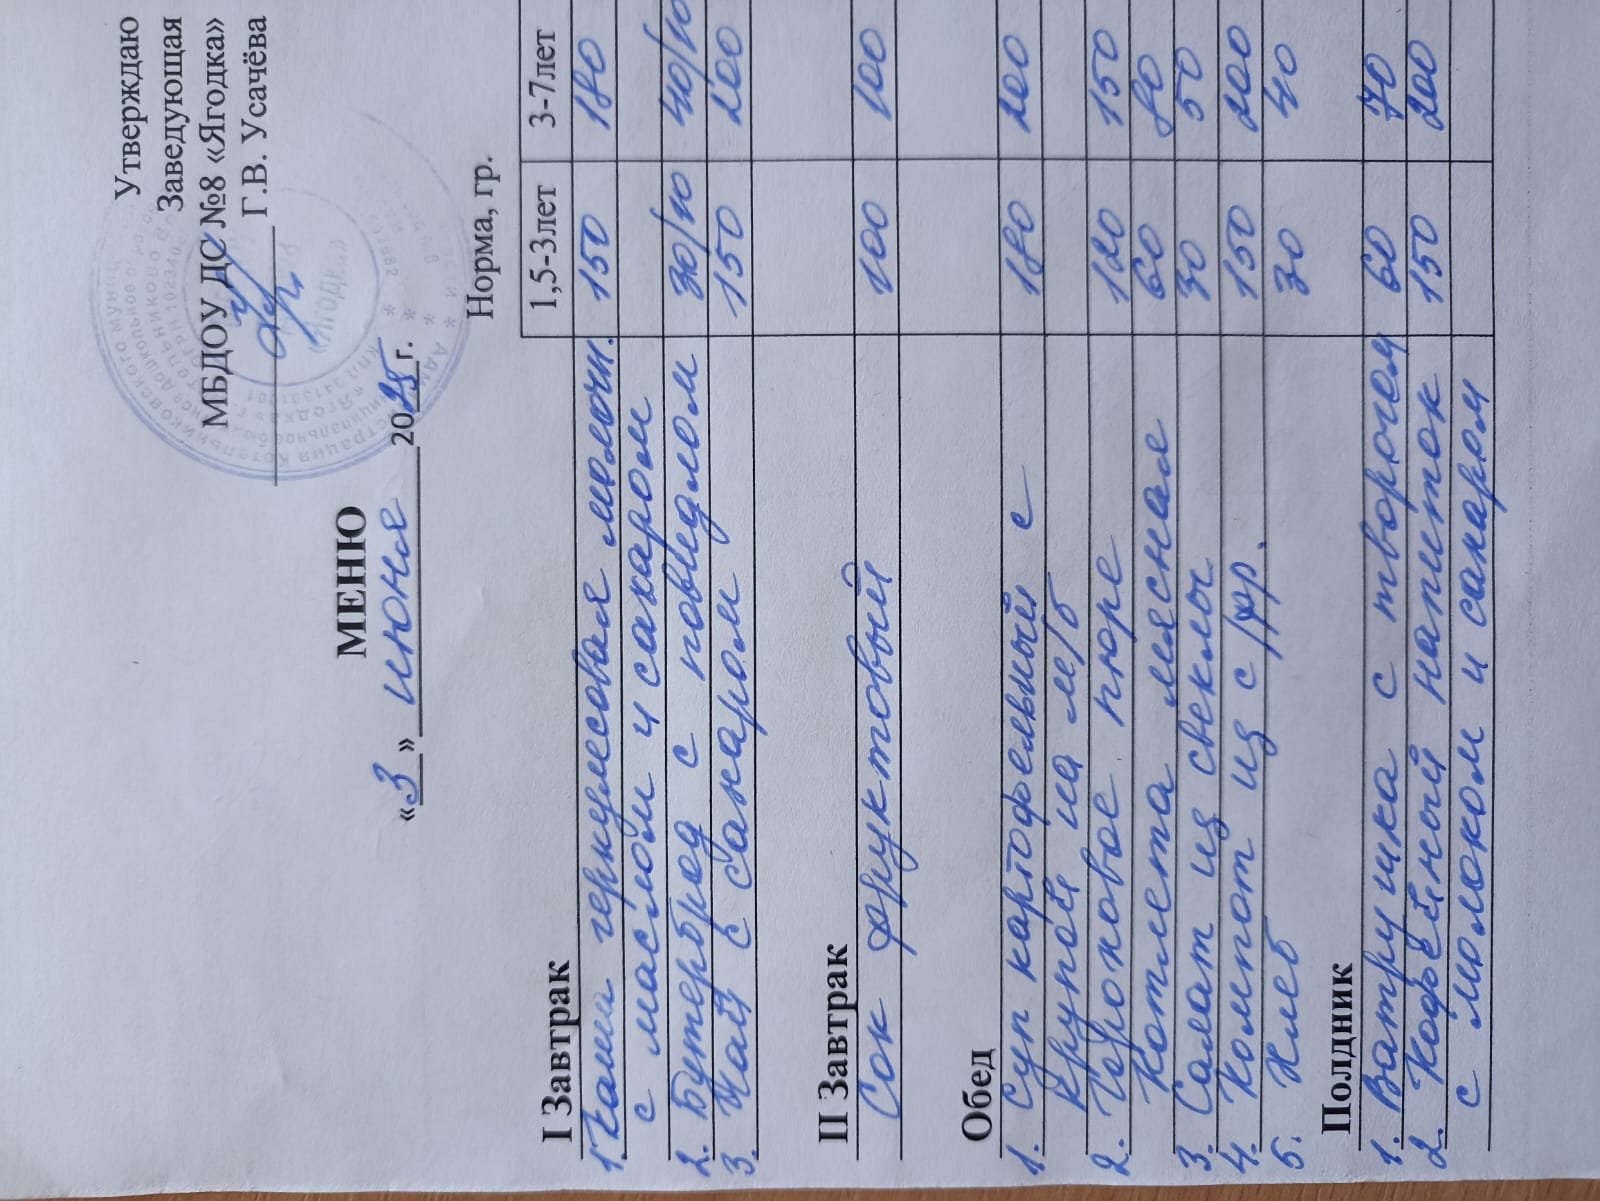 Утверждаю
Заведующая
МБДОУ ДС №8 «Ягодка»
Г.В. Усачёва
МЕНЮ
«3» июне 2025 г.
Норма, гр.
1,5-3лет 3-7лет
I Завтрак
1. Каша геркулесовая молочн. 150 180
с маслом и сахаром
2. Бутерброд с повидлом 30/10 40/10
3. Чай с сахаром 150 200
II Завтрак
Сок фруктовый 100 100
Обед
1. Суп картофельный с 180 200
крупой на м/б
2. Гороховое пюре 120 150
Котлета мясная 60 80
3. Салат из свеклы 30 50
4. Компот из с/фр. 150 200
5. Хлеб 30 40
Полдник
1. Ватрушка с творогом 60 70
2. Кофейный напиток 150 200
с молоком и сахаром